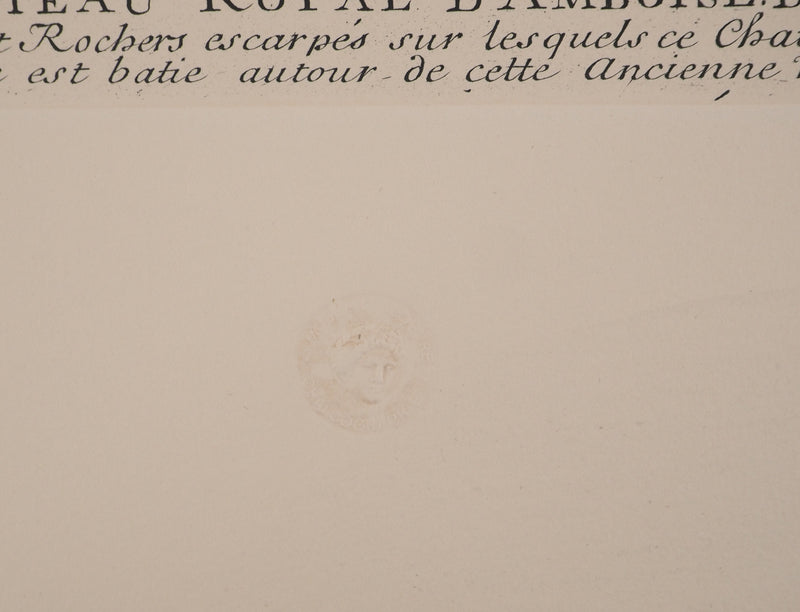 TEAU ROYAL D'AMBOISE.
Rochers escarpés sur lesquels ce
est batie autour de cette Ancienne